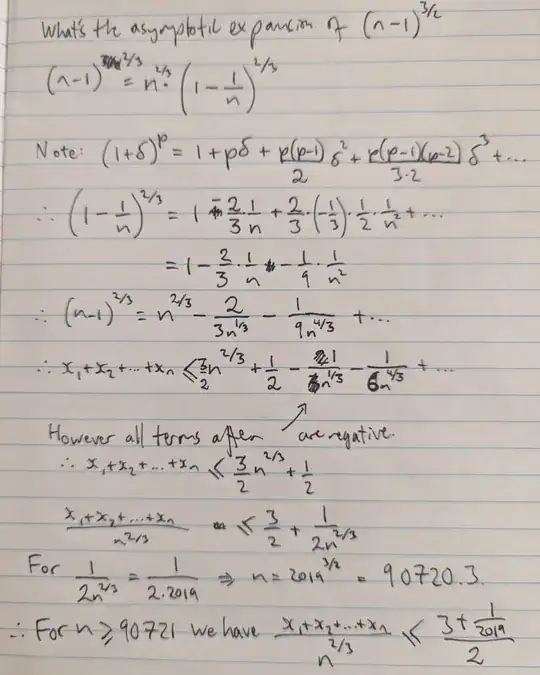 What's the asymptotic expansion of (n-1)^{3/2}
(n-1)^{2/3} = n^{2/3} · (1 - 1/n)^{2/3}
Note: (1+δ)^p = 1 + pδ + p(p-1)/2 δ^2 + p(p-1)(p-2)/3·2 δ^3 + ...
∴ (1 - 1/n)^{2/3} = 1 - 2/3 · 1/n + 2/3 · (-1/3) · 1/2 · 1/n^2 + ...
= 1 - 2/3 · 1/n - 1/9 · 1/n^2
∴ (n-1)^{2/3} = n^{2/3} - 2/3n^{1/3} - 1/9n^{4/3} + ...
∴ x_1 + x_2 + ... + x_n ≤ 3/2 n^{2/3} + 1/2 - 1/n^{1/3} - 1/6n^{4/3} + ...
However all terms after ↗ are negative.
∴ x_1 + x_2 + ... + x_n ≤ 3/2 n^{2/3} + 1/2
x_1 + x_2 + ... + x_n / n^{2/3} ≤ 3/2 + 1/2n^{2/3}
For 1/2n^{2/3} = 1/2·2019 ⇒ n = 2019^{3/2} = 90720.3.
∴ For n ≥ 90721 we have x_1 + x_2 + ... + x_n / n^{2/3} ≤ 3 + 1/2019 / 2